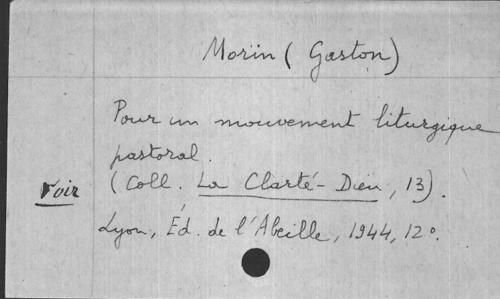 Morin (Gaston)
Pour un mouvement liturgique
pastoral.
(Coll. La Clarté-Dieu, 13).
voir
Lyon, Éd. de l'Abeille, 1944, 12°.